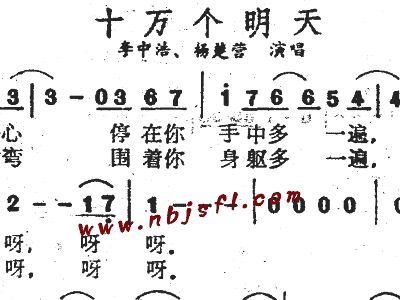 十万个明天
李中浩、杨楚营 演唱
3 | 3 - 03 67 | i 76 65 4 | 4
心 停在你 手中多 一遍，
弯 围着你 身躯多 一遍，
2 - - 17 | 1 - - - | 0 0 0 0
呀， 呀 呀。
呀， 呀 呀。
www.nbjsfl.com